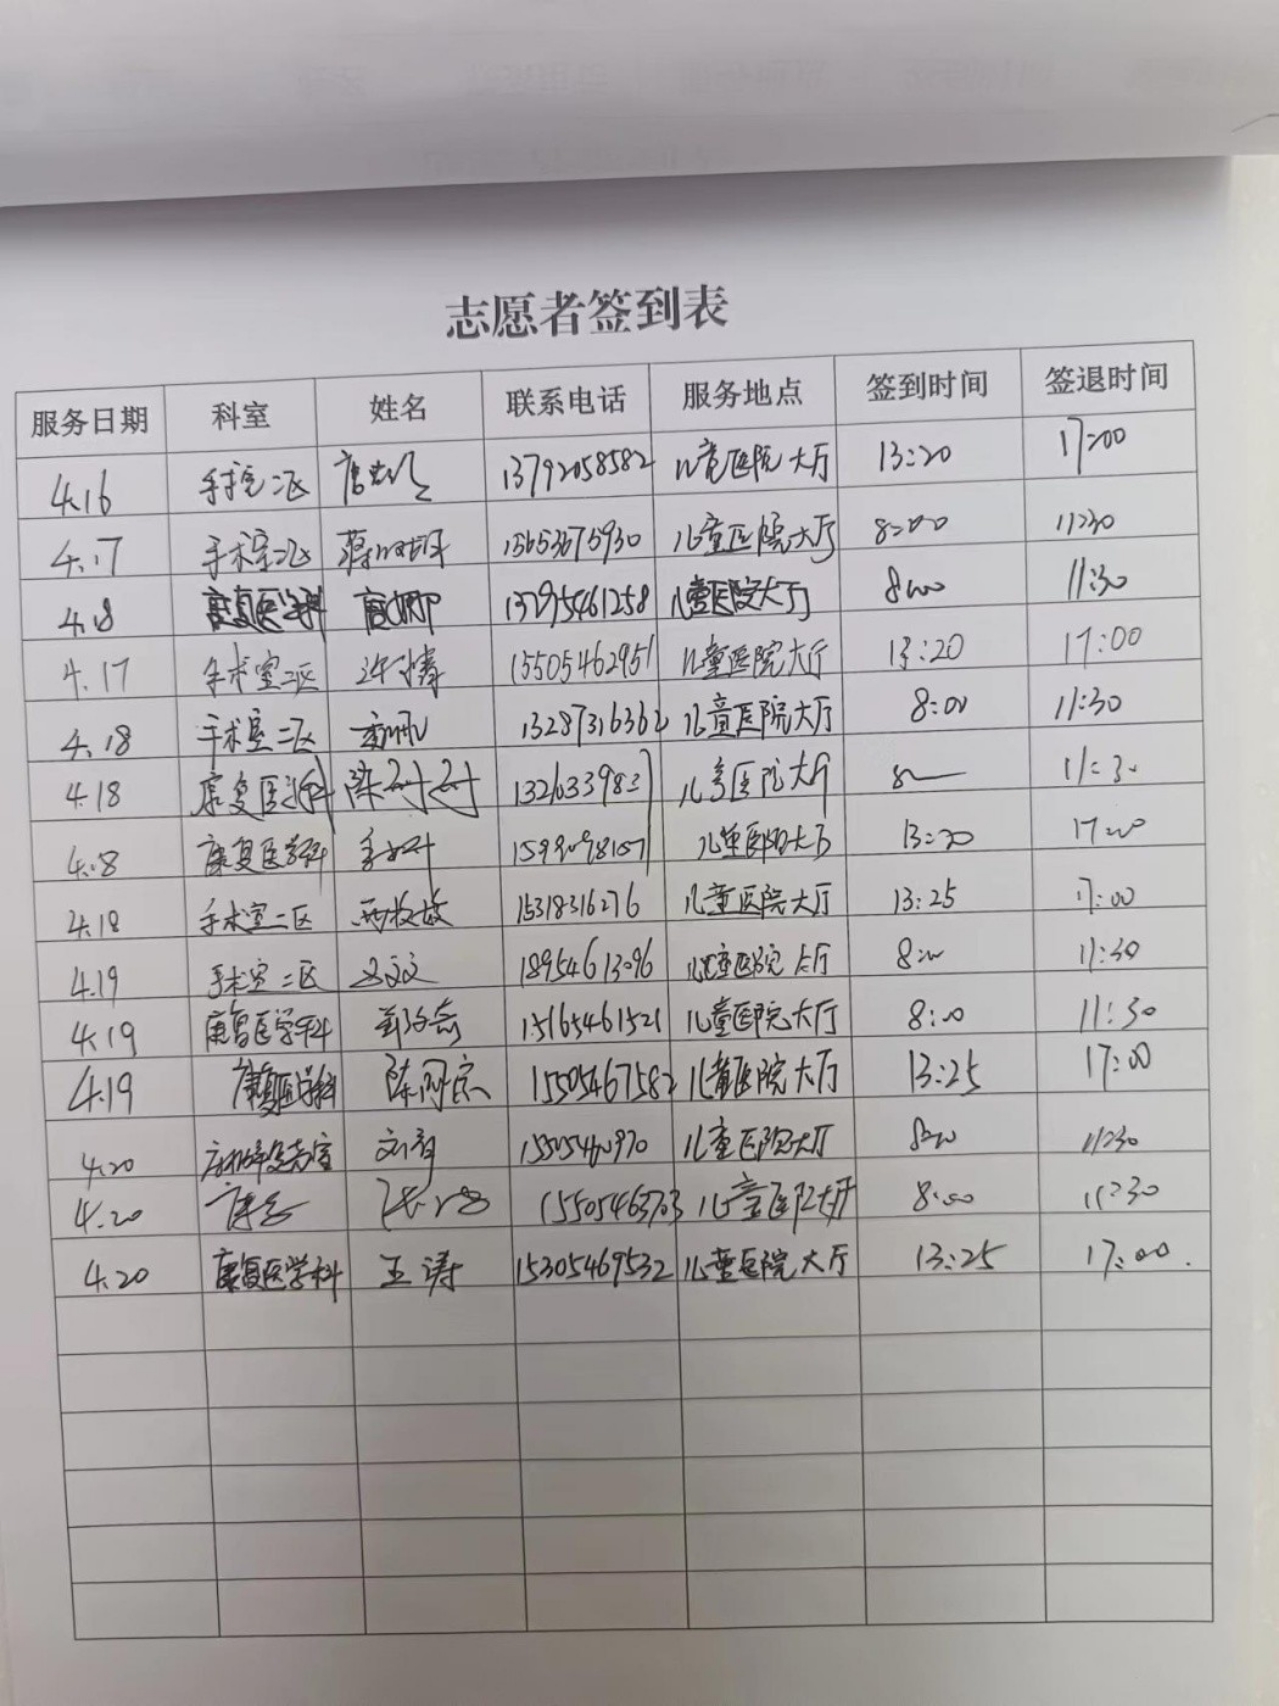 志愿者签到表
服务日期 科室 姓名 联系电话 服务地点 签到时间 签退时间
4.16 手术室二区 13792058582 儿童医院大厅 13:20 17:00
4.17 手术室二区 15653675930 儿童医院大厅 8:00 11:30
4.18 康复医学科 13795461258 儿童医院大厅 8:00 11:30
4.17 手术室二区 许博 15505462951 儿童医院大厅 13:20 17:00
4.18 手术室二区 13287316362 儿童医院大厅 8:00 11:30
4.18 康复医学科 儿童医院大厅 8 11:30
4.18 康复医学科 儿童医院大厅 13:20 17:00
4.18 手术室二区 15318316276 儿童医院大厅 13:25 17:00
4.19 手术室二区 18954613096 儿童医院大厅 8:00 11:30
4.19 康复医学科 15165461521 儿童医院大厅 8:00 11:30
4.19 康复医学科 15505467582 儿童医院大厅 13:25 17:00
4.20 儿童医院大厅 8:00 11:30
4.20 康复 15505463703 儿童医院大厅 8:00 11:30
4.20 康复医学科 王涛 15305469532 儿童医院大厅 13:25 17:00.